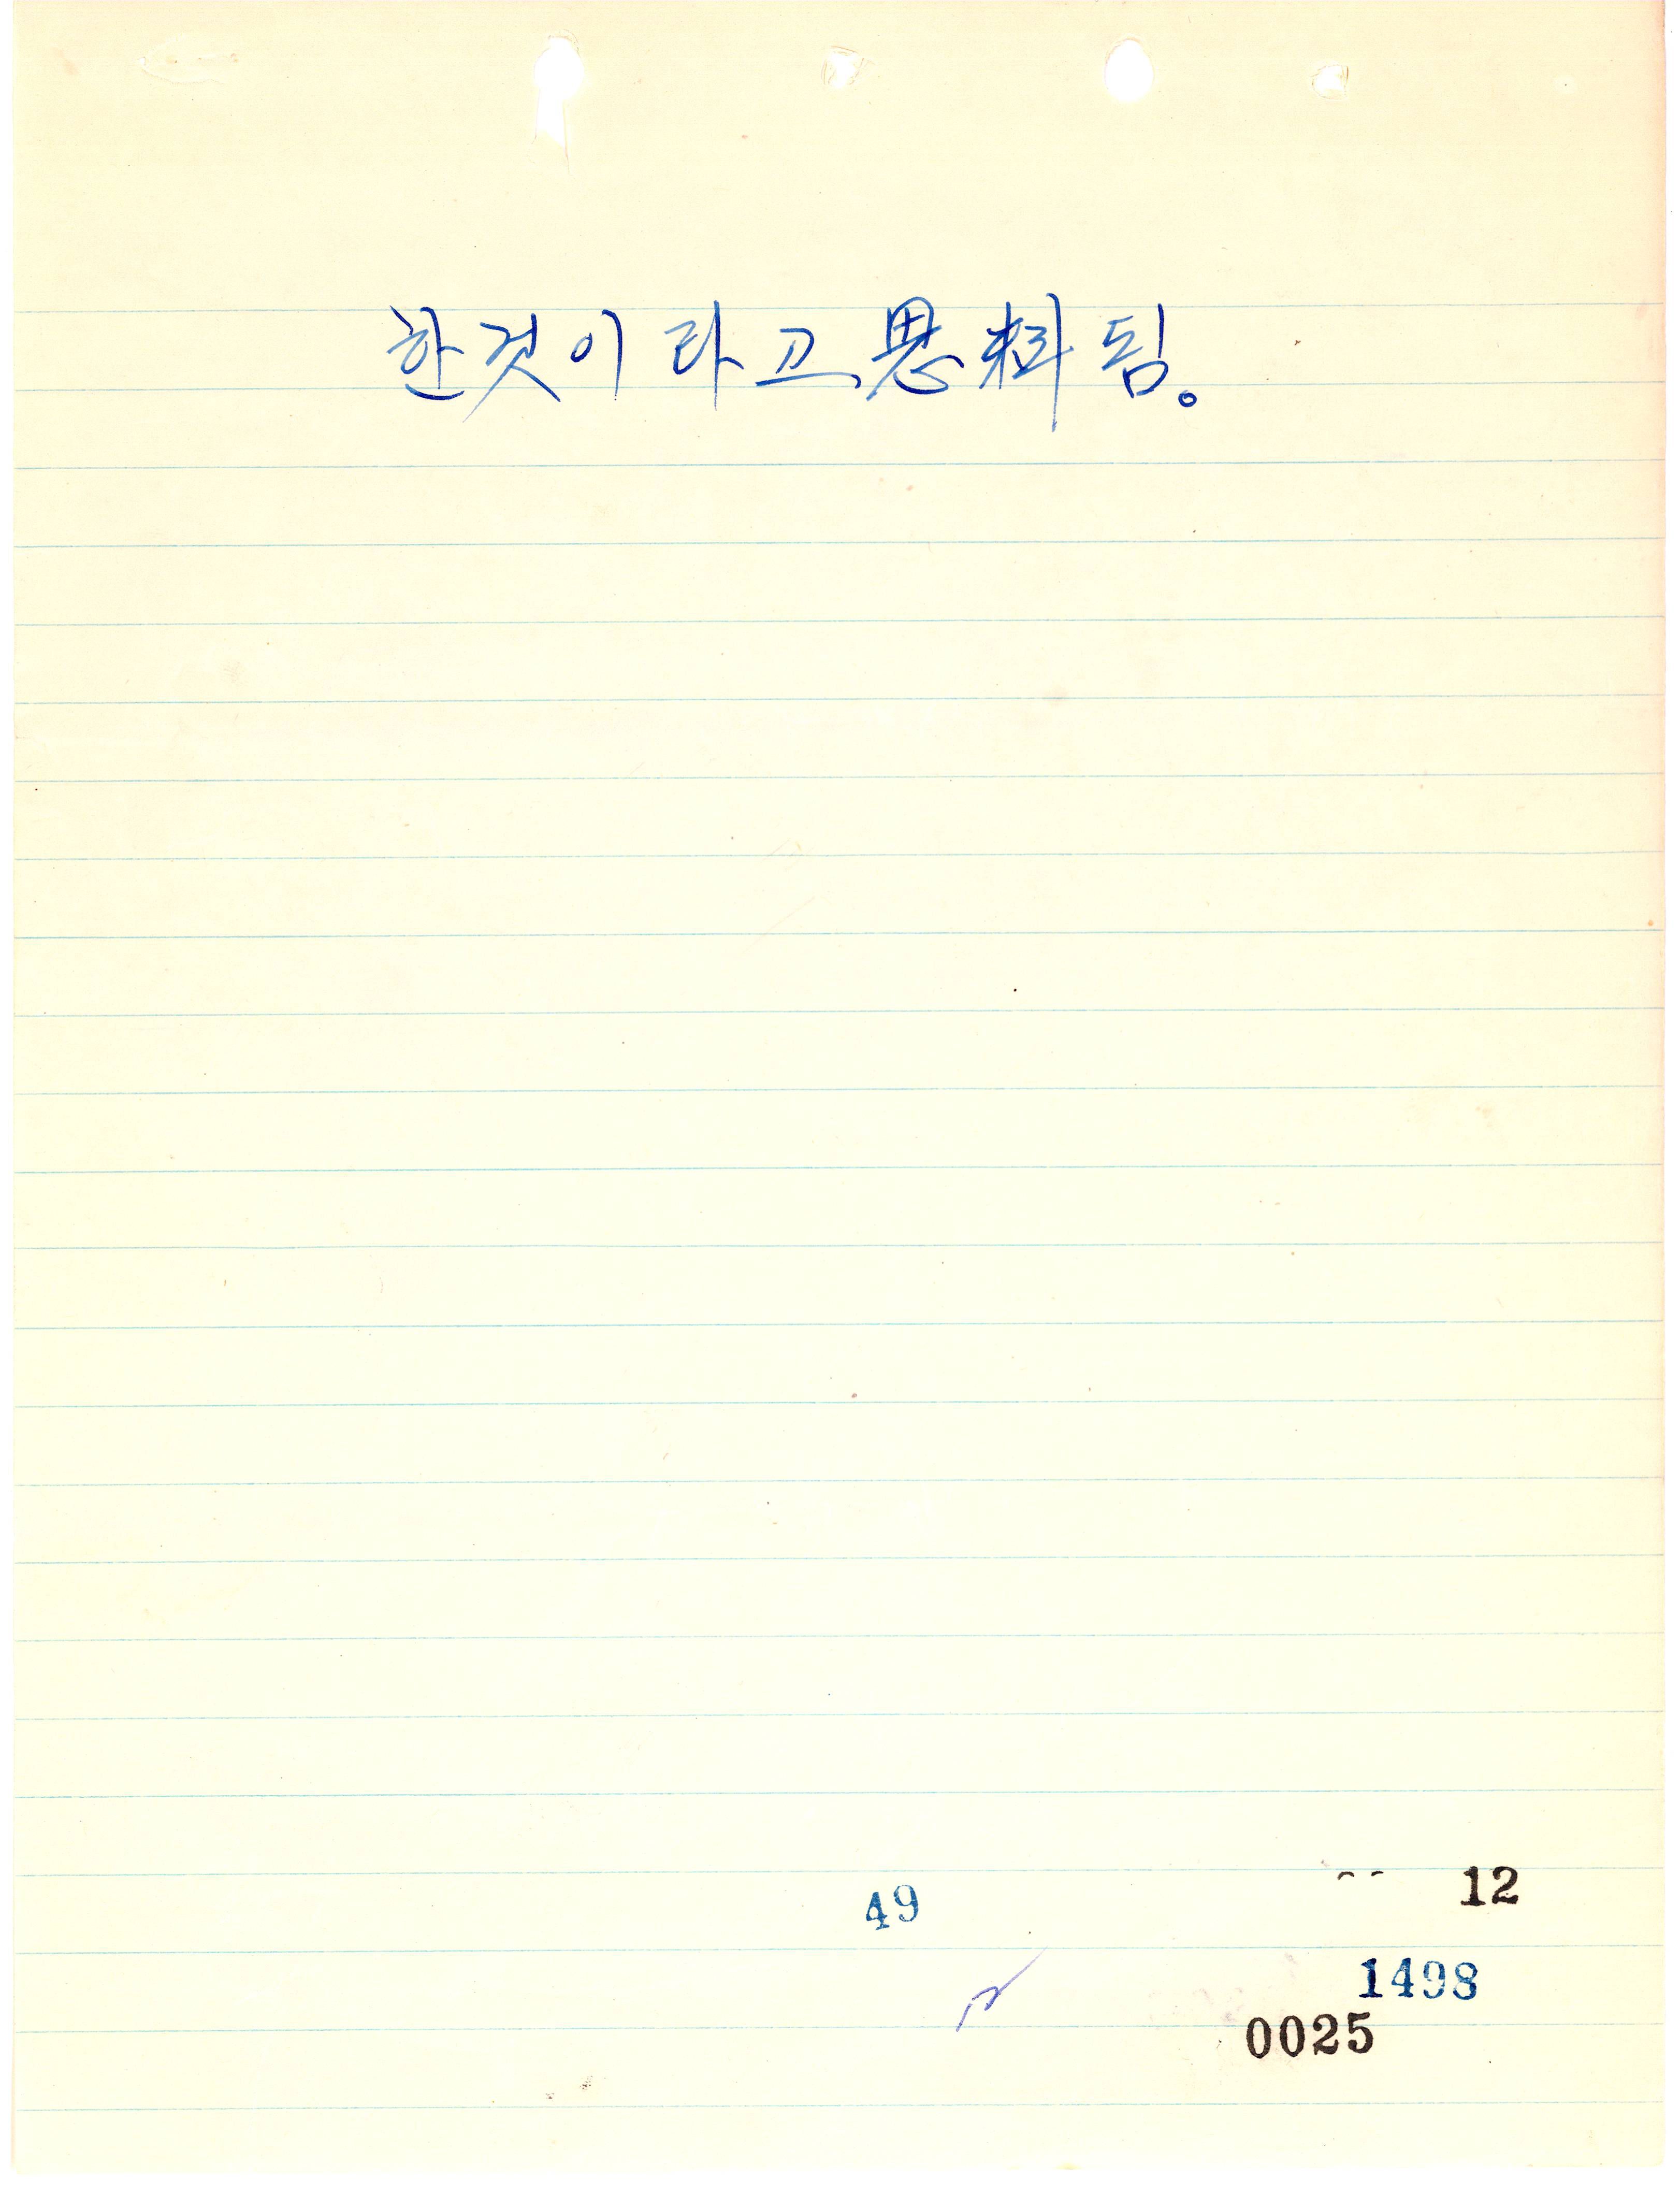 한것이라고 思料됨。
49
12
1498
0025